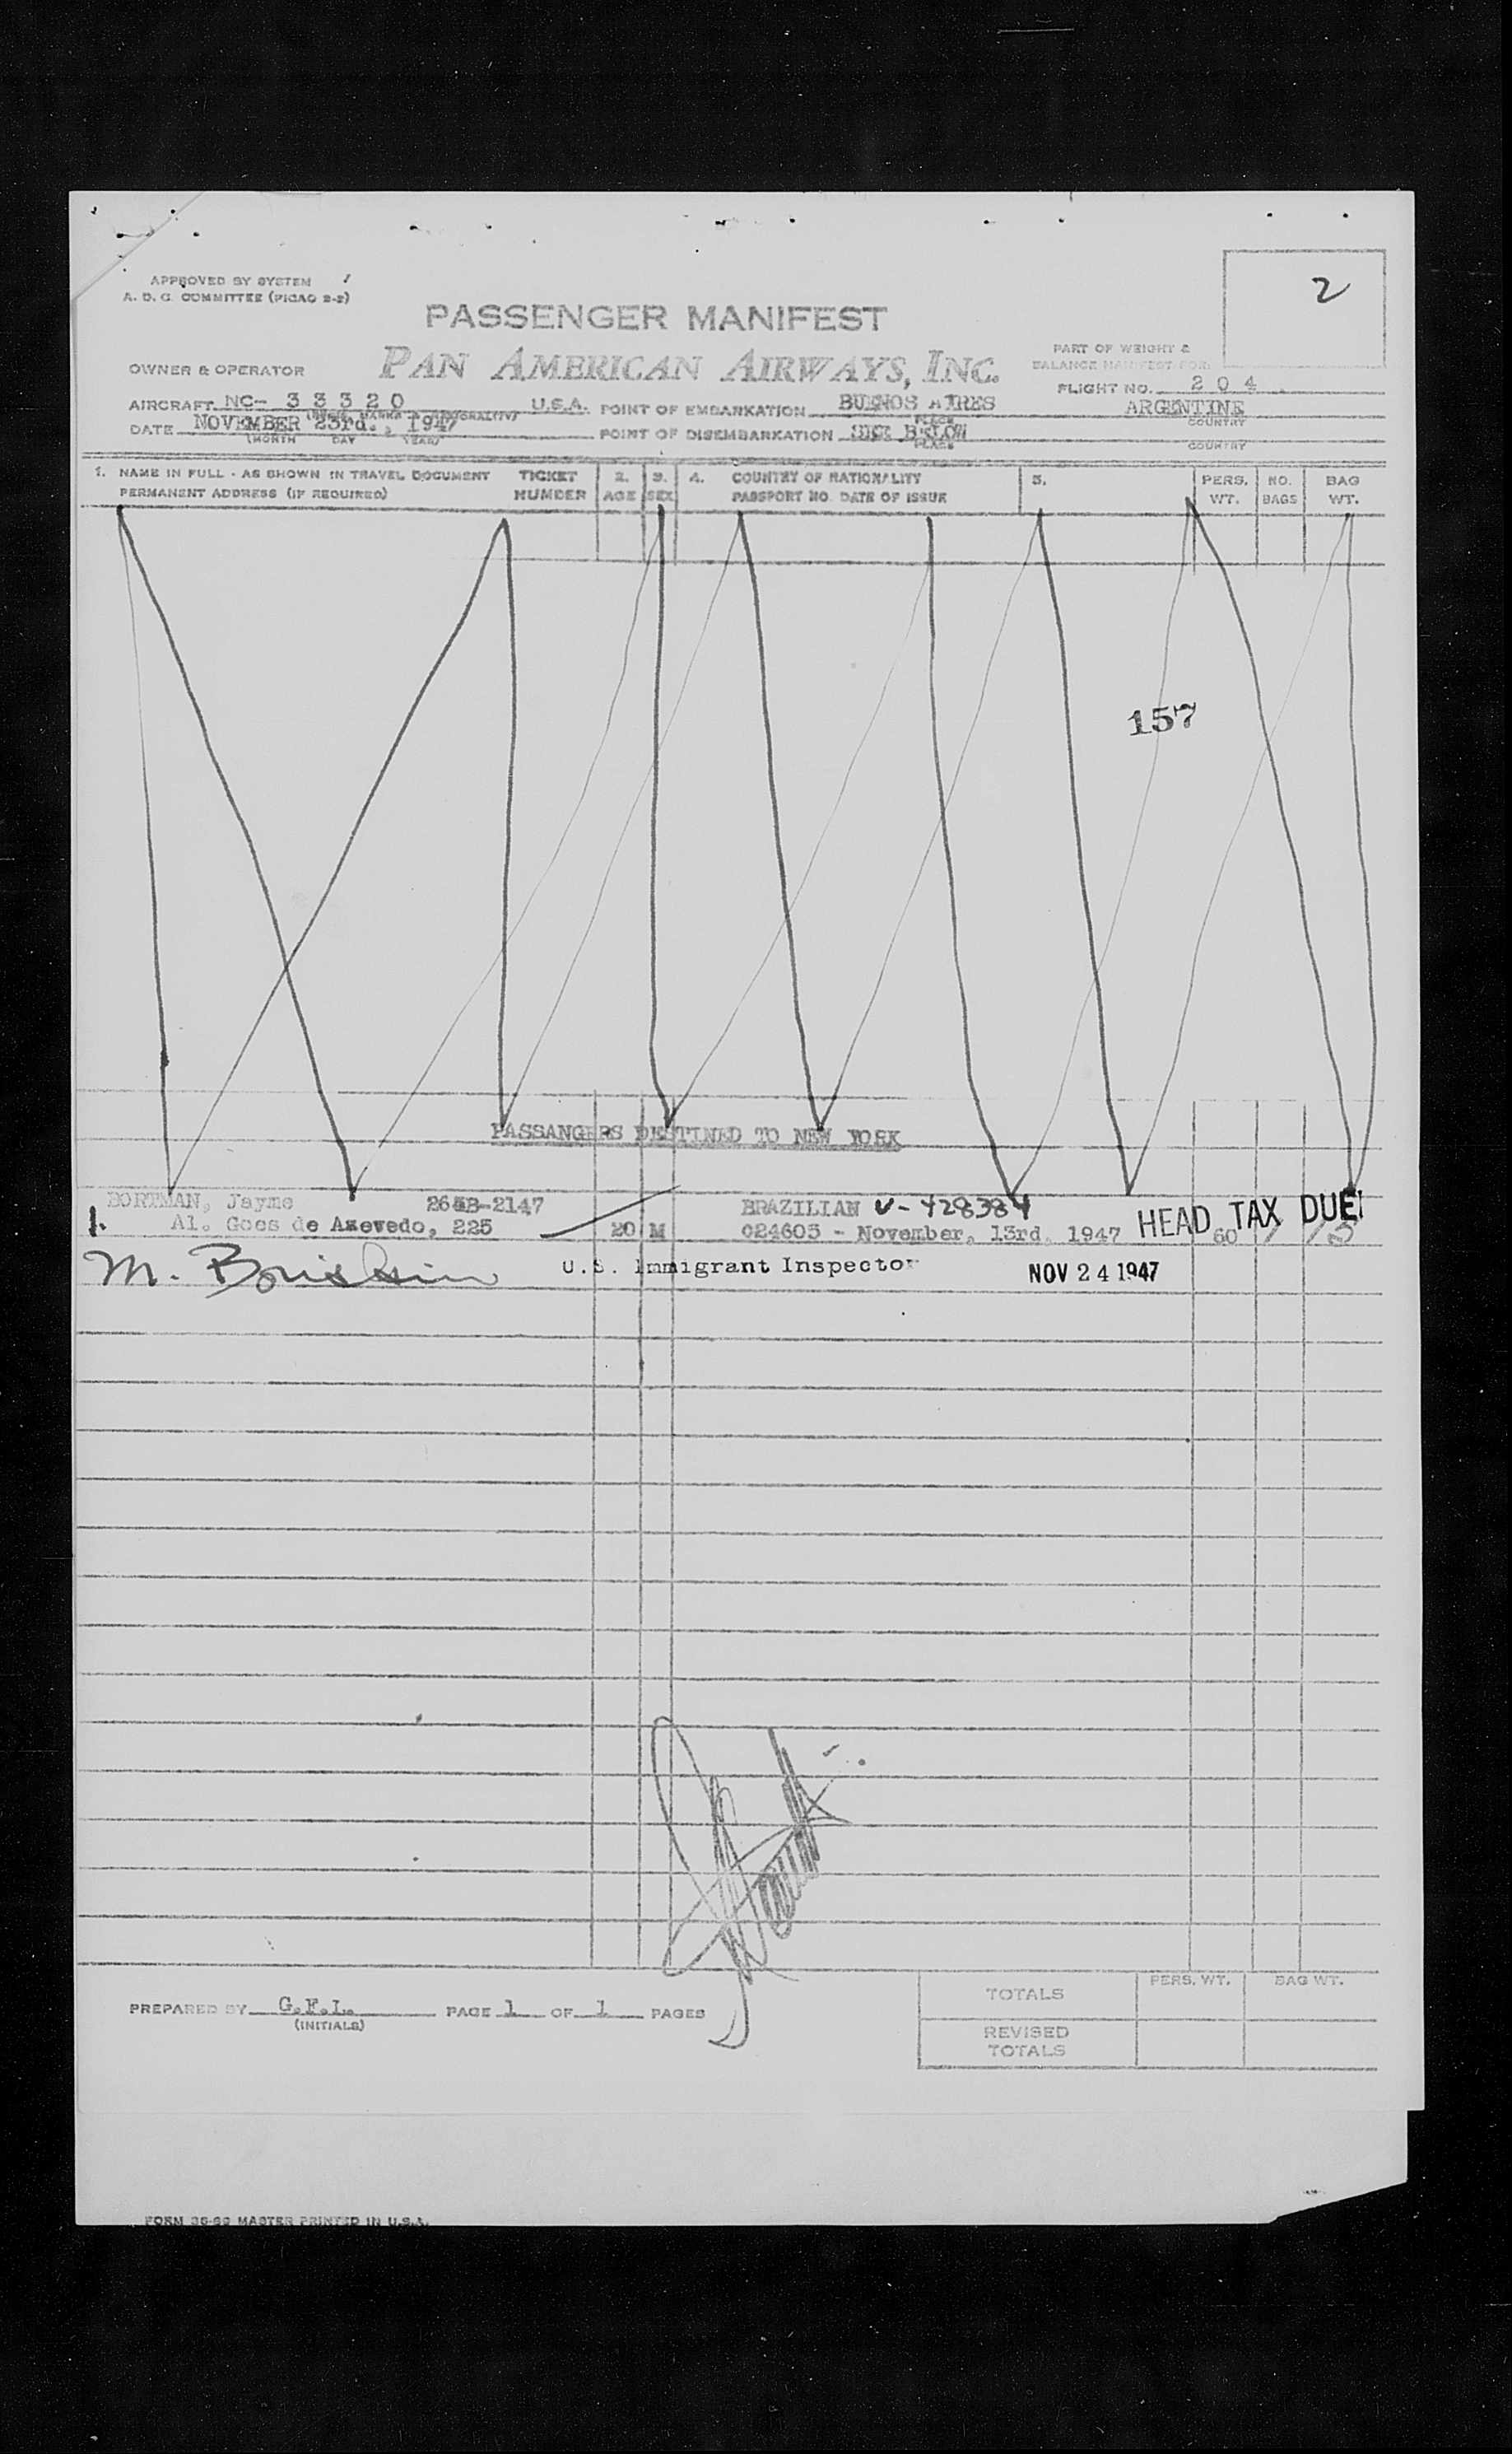 APPROVED BY SYSTEM
A. D. C. COMMITTEE (PICAO 2-2)
2
PASSENGER MANIFEST
OWNER & OPERATOR PAN AMERICAN AIRWAYS, INC.
PART OF WEIGHT &
BALANCE MANIFEST FOR:
FLIGHT NO. 204
AIRCRAFT NC- 33320 U.S.A. POINT OF EMBARKATION BUENOS AIRES ARGENTINE
PLACE COUNTRY
DATE NOVEMBER 23rd., 1947 POINT OF DISEMBARKATION SEE BELOW
(MONTH DAY YEAR) PLACE COUNTRY
1. NAME IN FULL - AS SHOWN IN TRAVEL DOCUMENT TICKET 2. 3. 4. COUNTRY OF NATIONALITY 5. PERS. NO. BAG
PERMANENT ADDRESS (IF REQUIRED) NUMBER AGE SEX PASSPORT NO. DATE OF ISSUE WT. BAGS WT.
157
PASSANGERS DESTINED TO NEW YORK
BORTMAN, Jayme 2648-2147 BRAZILIAN V-428384
1. Al. Goes de Azevedo, 225 20 M 024603 - November, 13rd. 1947 HEAD TAX DUE
60 1 13
M. U.S. Immigrant Inspector NOV 24 1947
PREPARED BY G.F.L. PAGE 1 OF 1 PAGES
(INITIALS)
PERS. WT. BAG WT.
TOTALS
REVISED
TOTALS
FORM 36-52 MASTER PRINTED IN U.S.A.